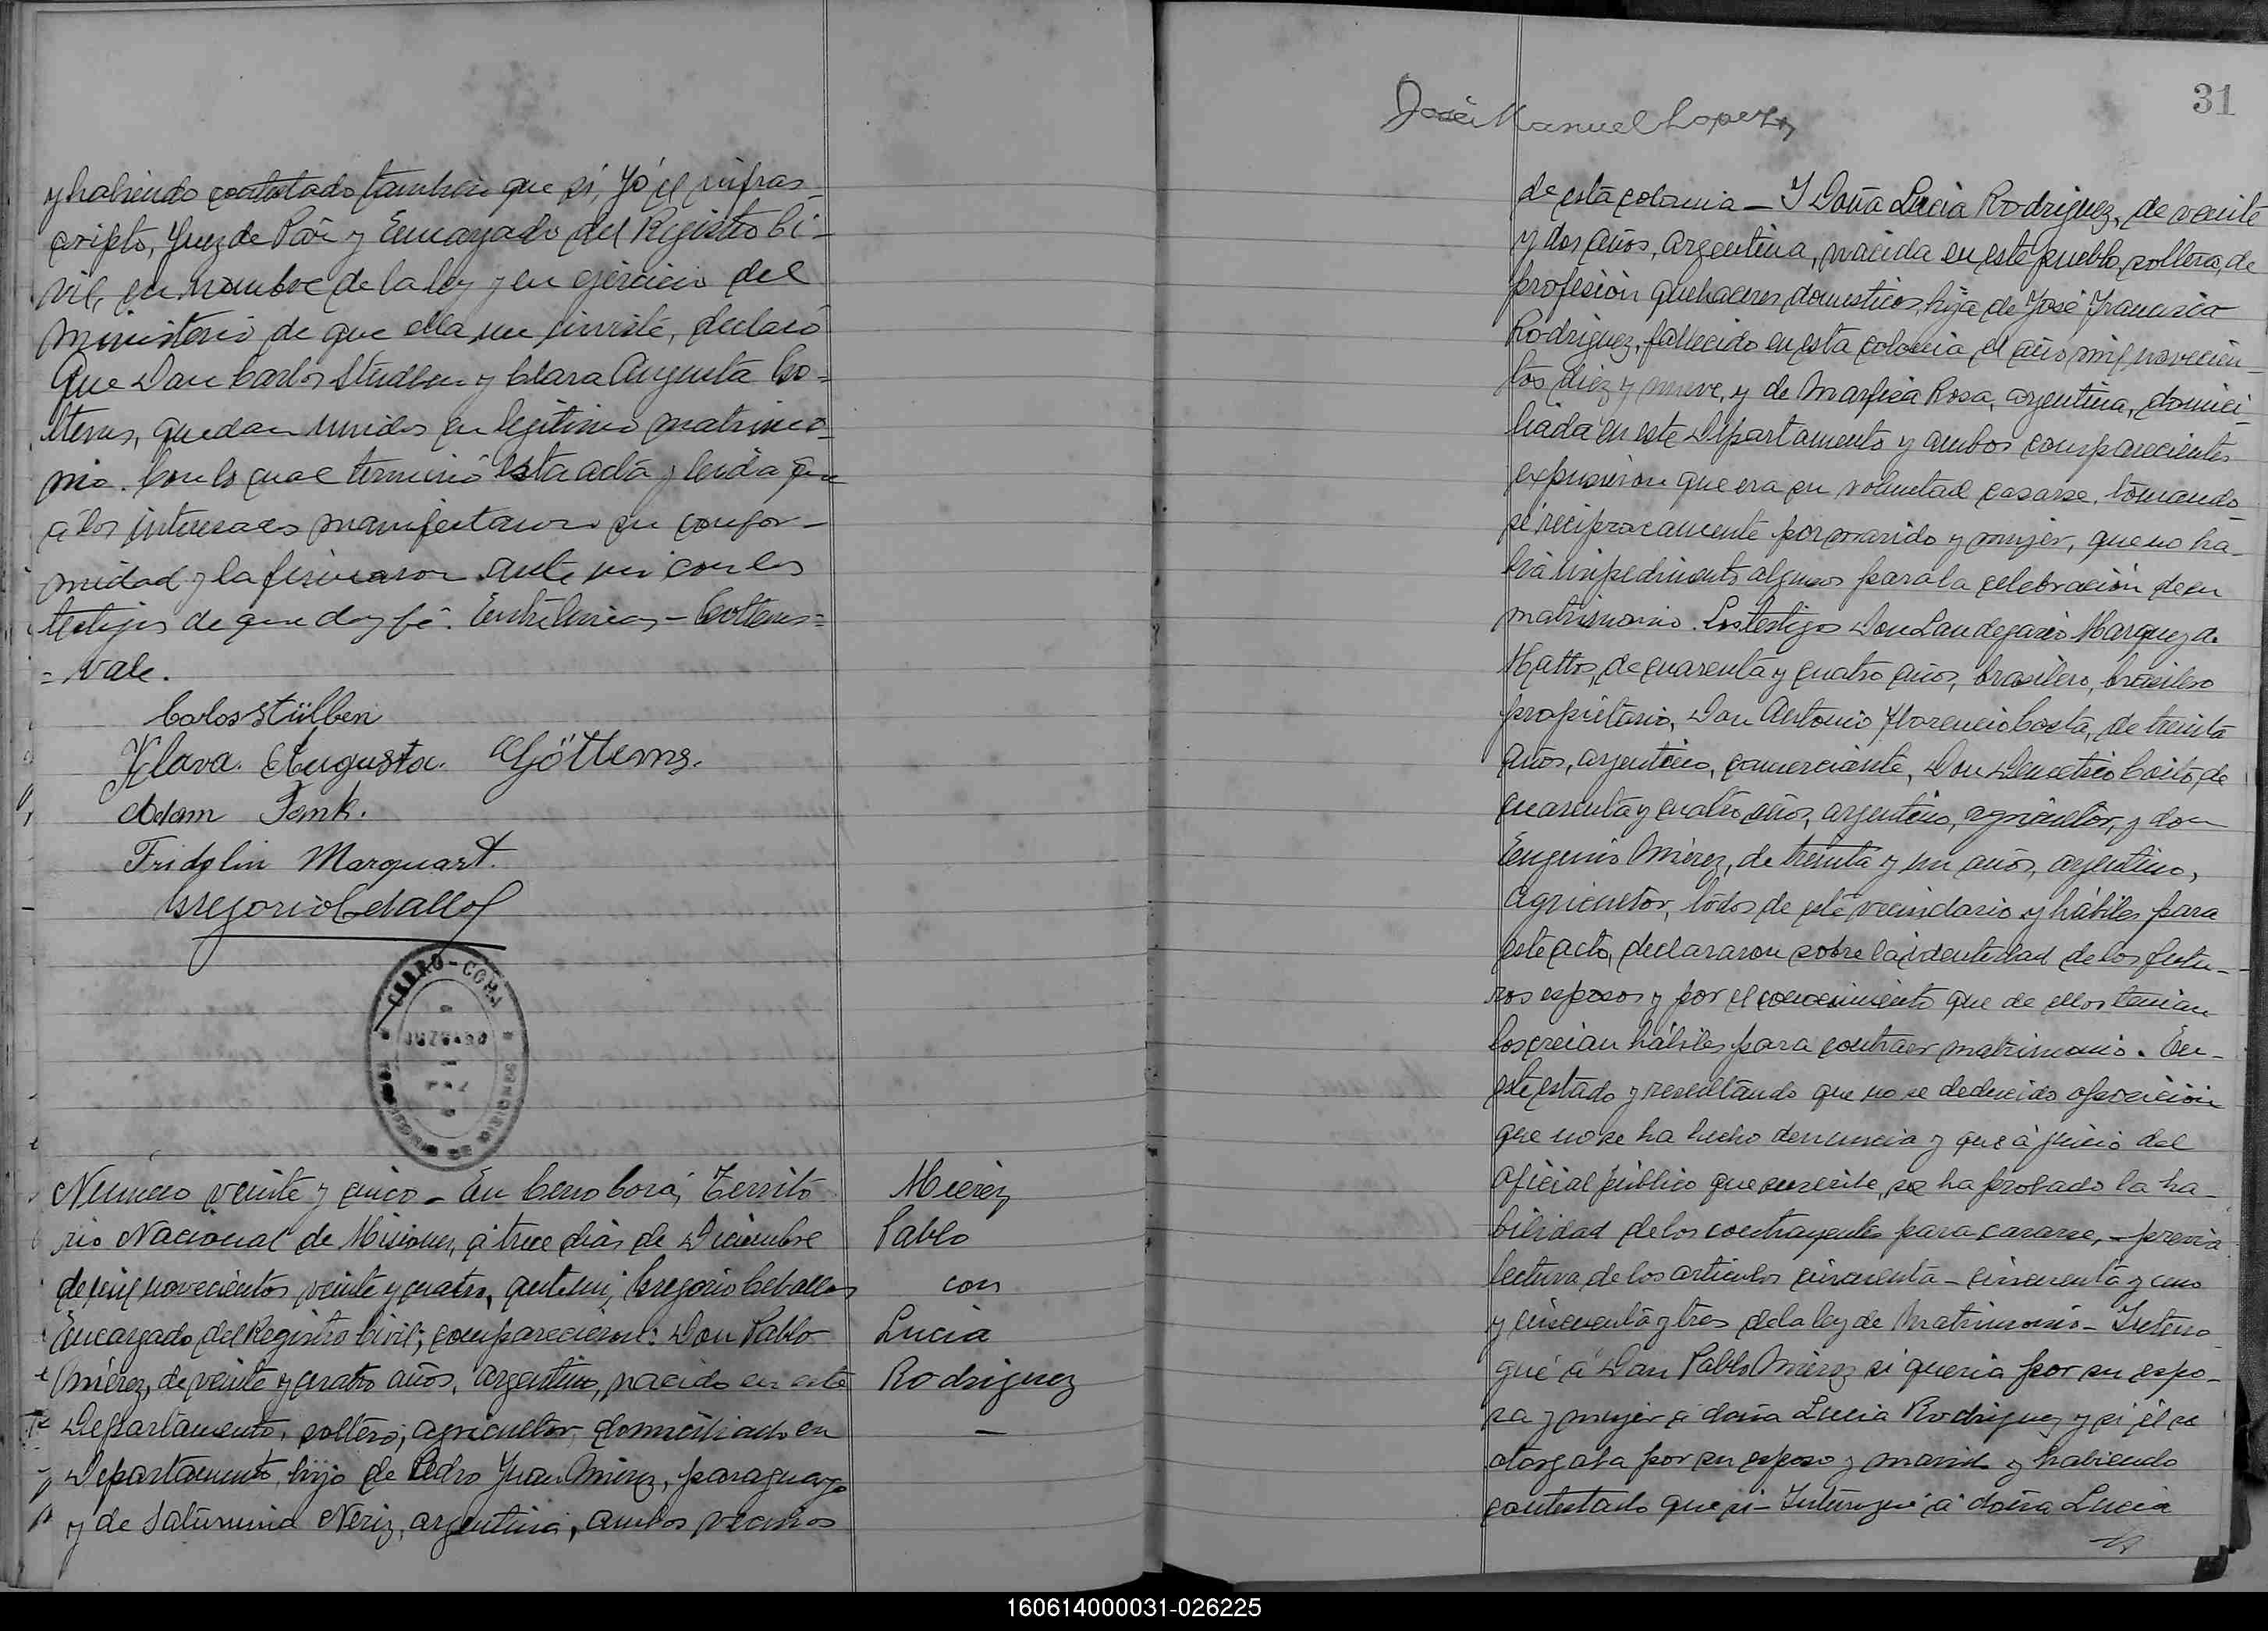 y habiendo contestado tambien que si, Yó el infras-
cripto, Juez de Paz y Encargado del Registro Ci-
vil, en nombre de la ley y en ejercicio del
Ministerio de que ella me inviste, declaró
Que Don Carlos Studben y Clara Augusta Go-
ttems, quedan unidos en legitimo matrimo-
nio. Con lo cual terminó esta acta y leida que
á los interesados manifestaron su confor-
midad y la firmaron ante mi con los
testigos de que doy fé. Entre lineas - Gottems =
= vale.
Carlos Stülben
Klara. Augusta. Göttems.
Adam Fenk.
Fridolin Marquart.
Gregorio Ceballos
CERRO-CORA
JUZGADO
PAZ
Número veinte y cinco - En Cerro Corá, Territo
rio Nacional de Misiones, á trece dias de Diciembre
de mil novecientos veinte y cuatro, ante mi, Gregorio Ceballos
Encargado del Registro Civil; comparecieron: Don Pablo
Mierez, de veinte y cuatro años, argentino, nacido en este
Departamento, soltero, agricultor, domiciliado en
Departamento, hijo de Pedro Juan Mierez, paraguayo
y de Saturnina Neriz, argentina, ambos vecinos
Mierez
Pablo
con
Lucia
Rodriguez
-
José Manuel Lopez
31
de esta colonia - Y Doña Lucia Rodriguez, de veinte
y dos años, argentina, nacida en este pueblo, soltera, de
profesión quehaceres domesticos, hija de José Francisco
Rodriguez, fallecido en esta colonia el año mil novecien-
tos diez y nueve, y de Marfisa Rosa, argentina, domici-
liada en este Departamento y ambos comparecientes
expusieron que era su voluntad casarse, tomando
sé reciprocamente por marido y mujer, que no ha-
bia impedimento alguno para la celebración de su
matrimonio. Los testigos Don Laudegario Marquez de
Mattos, de cuarenta y cuatro años, brasilero, brasilero
propietario, Don Antonio Florencio Costa, de treinta
años, argentino, comerciante, Don Demetrio Coito, de
cuarenta y cuatro años, argentino, agricultor, y don
Eugenio Mierez, de treinta y un años, argentino,
agricultor, todos de este vecindario y hábiles para
este acto, declararon sobre la identidad de los futu-
ros esposos y por el conocimiento que de ellos tenian
los creian hábiles para contraer matrimonio. En-
este estado y resultando que no se deducido oposición
que no se ha hecho denuncia y que á juicio del
oficial público que suscribe, se ha probado la ha-
bilidad de los contrayentes para casarse, - previa
lectura de los articulos cincuenta - cincuenta y uno
y cincuenta y tres de la ley de Matrimonio - Interro
gué á Don Pablo Mierez si queria por su espo-
sa y mujer á doña Lucia Rodriguez y si él se
otorgaba por su esposo y marido y habiendo
contestado que si - Interrogué á doña Lucia
160614000031-026225